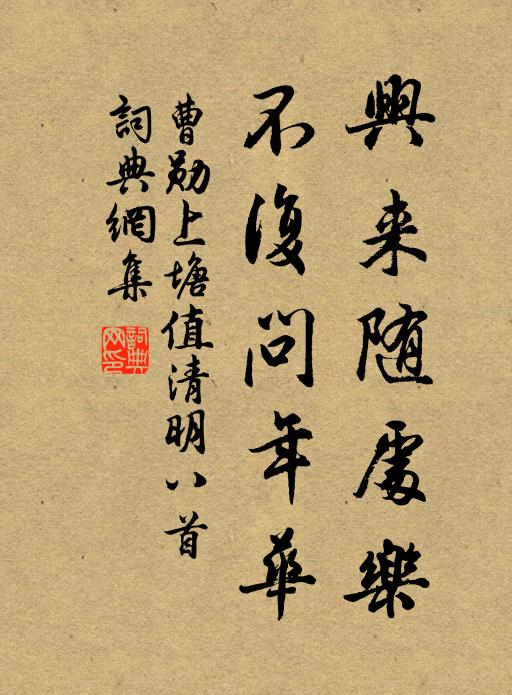 興来随處樂
不復問年華
曹勛上塘值清明八首
詞典網集
詞典網印